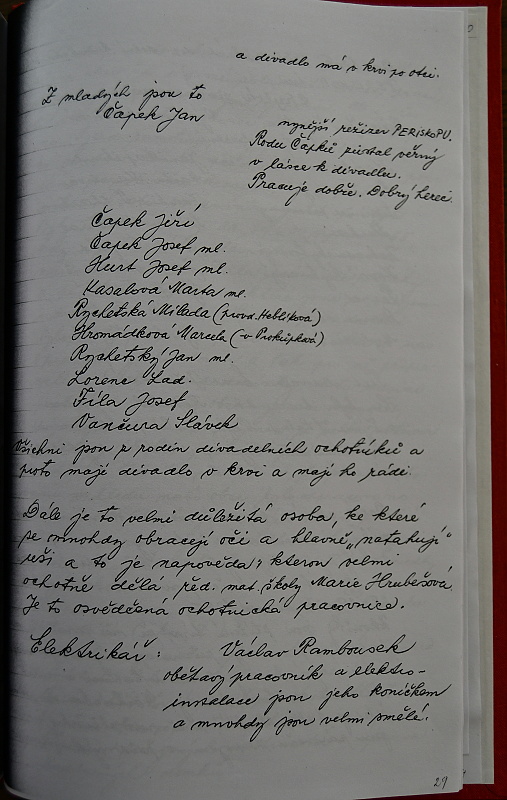 a divadlo má v krvi po otci.
Z mladých jsou to
Čapek Jan
nynější režizer PERISKOPU.
Rodu Čapků zůstal věrný
v lásce k divadlu.
Pracuje dobře. Dobrý herec.
Čapek Jiří
Čapek Josef ml.
Hurt Josef ml.
Kasalová Marta ml.
Rychetská Milada (provd. Heblíková)
Hromádková Marcela (-v Prokůpková)
Rychetský Jan ml.
Lorenc Lad.
Fila Josef
Vančura Slávek
Všichni jsou z rodin divadelních ochotníků a
proto mají divadlo v krvi a mají ho rádi.
Dále je to velmi důležitá osoba, ke které
se mnohdy obracejí oči a hlavně „natahují"
uši a to je nápověda, kterou velmi
ochotně dělá řed. mat. školy Marie Hrubešová.
Je to osvědčená ochotnická pracovnice.
Elektrikář: Václav Rambousek
obětavý pracovník a elektro-
instalace jsou jeho koníčkem
a mnohdy jsou velmi smělé.
29